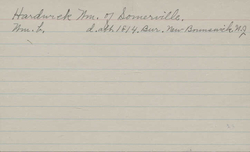 Hardwick Wm. of Somerville.
Wm. L. d. abt. 1914. Bur. New Brunswick N.J.